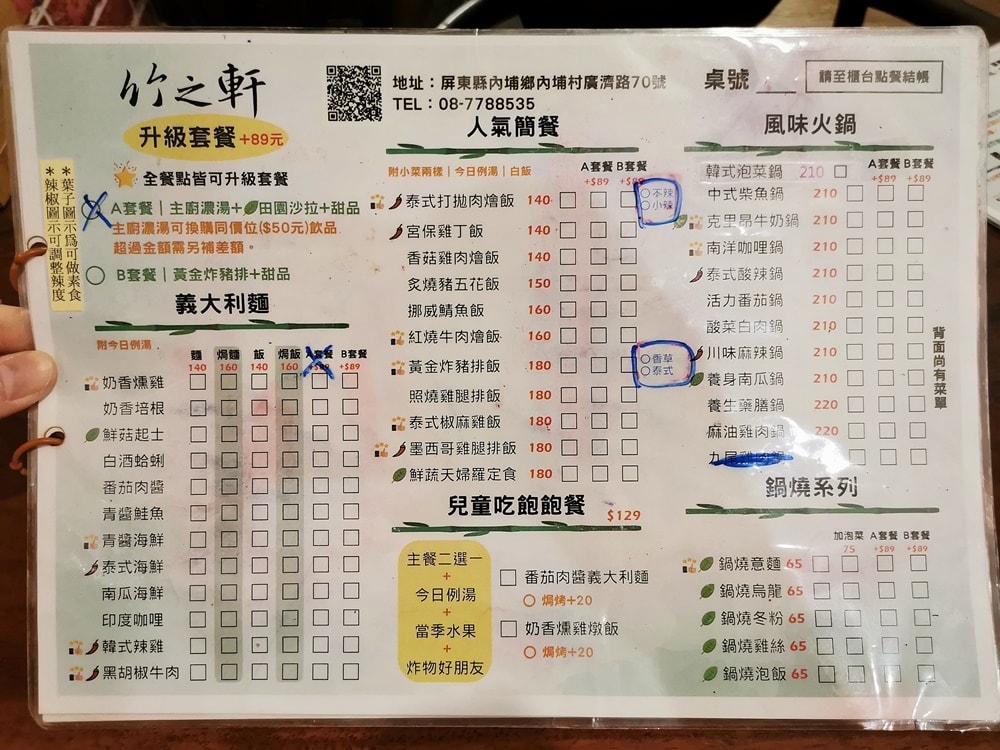 竹之軒
地址：屏東縣內埔鄉內埔村廣濟路70號
TEL：08-7788535
桌號
請至櫃台點餐結帳
升級套餐+89元
全餐點皆可升級套餐
A套餐｜主廚濃湯+田園沙拉+甜品
主廚濃湯可換購同價位($50元)飲品
超過金額需另補差額。
B套餐｜黃金炸豬排+甜品
*葉子圖示為可做素食
*辣椒圖示可調整辣度
義大利麵
附今日例湯
麵 焗麵 飯 焗飯 A套餐 B套餐
140 160 140 160 +$89 +$89
奶香燻雞
奶香培根
鮮菇起士
白酒蛤蜊
番茄肉醬
青醬鮭魚
青醬海鮮
泰式海鮮
南瓜海鮮
印度咖哩
韓式辣雞
黑胡椒牛肉
人氣簡餐
附小菜兩樣｜今日例湯｜白飯
A套餐 B套餐
+$89 +$89
泰式打拋肉燴飯 140
不辣
小辣
宮保雞丁飯 140
香菇雞肉燴飯 140
炙燒豬五花飯 150
挪威鯖魚飯 160
紅燒牛肉燴飯 160
黃金炸豬排飯 160
香草
泰式
照燒雞腿排飯 180
泰式椒麻雞飯 180
墨西哥雞腿排飯 180
鮮蔬天婦羅定食 180
兒童吃飽飽餐 $129
主餐二選一
+
今日例湯
+
當季水果
+
炸物好朋友
番茄肉醬義大利麵
焗烤+20
奶香燻雞燉飯
焗烤+20
風味火鍋
A套餐 B套餐
+$89 +$89
韓式泡菜鍋 210
中式柴魚鍋 210
克里昂牛奶鍋 210
南洋咖哩鍋 210
泰式酸辣鍋 210
活力番茄鍋 210
酸菜白肉鍋 210
川味麻辣鍋 210
養身南瓜鍋 210
養生藥膳鍋 220
麻油雞肉鍋 220
背面尚有菜單
鍋燒系列
加泡菜 A套餐 B套餐
75 +$89 +$89
鍋燒意麵 65
鍋燒烏龍 65
鍋燒冬粉 65
鍋燒雞絲 65
鍋燒泡飯 65